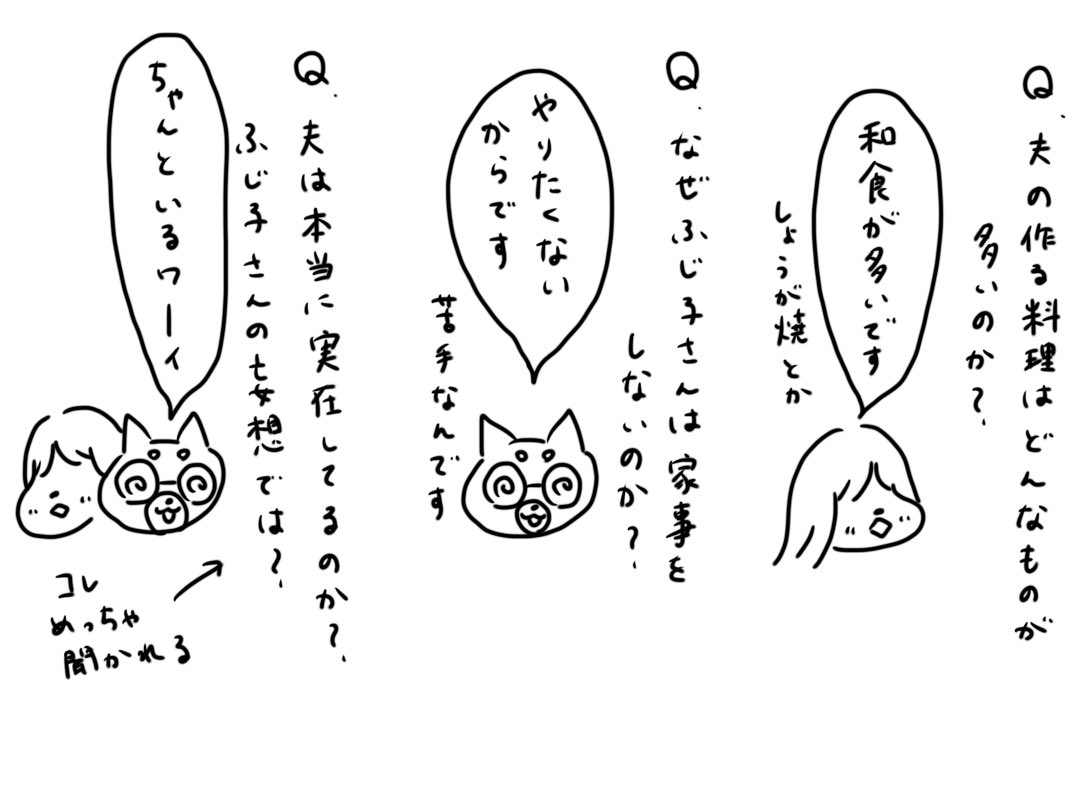 Q.夫の作る料理はどんなものが
多いのか？
和食が多いです
しょうが焼とか
Q.なぜふじ子さんは家事を
しないのか？
やりたくない
からです
苦手なんです
Q.夫は本当に実在してるのか？
ふじ子さんの妄想では？
ちゃんといるワーイ
コレ
めっちゃ
聞かれる